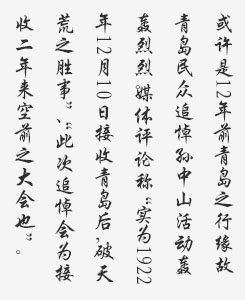 或许是12年前青岛之行缘故
青岛民众追悼孙中山活动轰
轰烈烈，媒体评论称：“实为1922
年12月10日接收青岛后，破天
荒之胜事”、“此次追悼会为接
收二年来空前之大会也”。